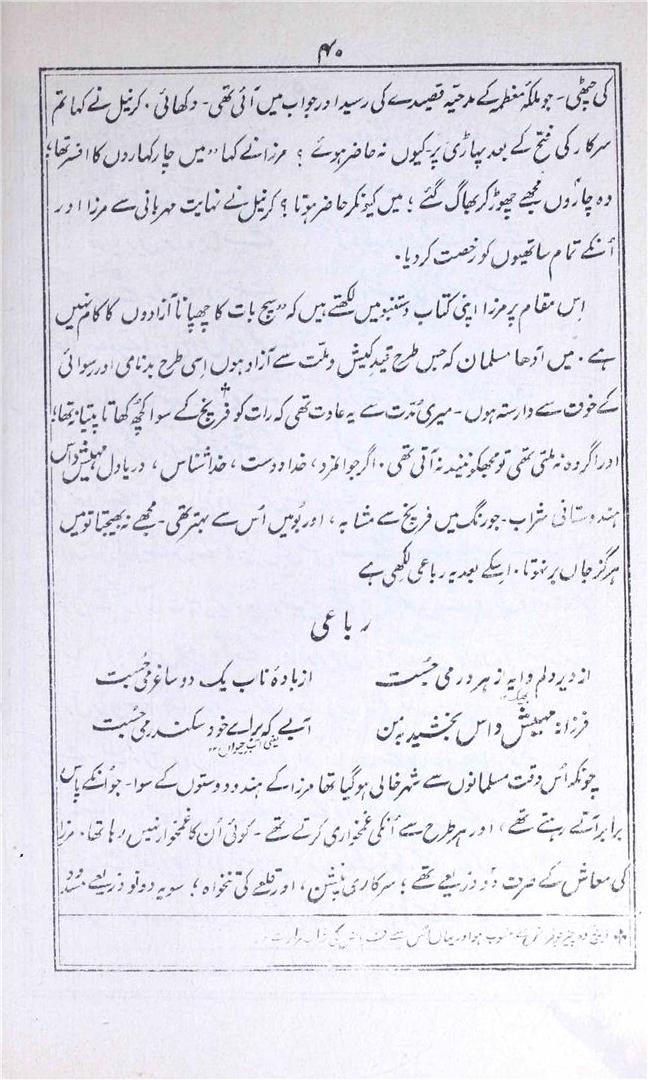 ۴۰
کی چٹھی - جو ملکۂ معظمہ کے مدحیّہ قصیدے کی رسید اور جواب میں آئی تھی - دکھائی ۰ کرنیل نے کہا تم
سرکار کی فتح کے بعد پہاڑی پر کیوں نہ حاضر ہوئے ؟ مرزا نے کہا ،، میں چار کہاروں کا افسر تھا ؛
وہ چاروں مجھے چھوڑ کر بھاگ گئے ؛ میں کیونکر حاضر ہوتا ؟ کرنیل نے نہایت مہربانی سے مرزا اور
اُنکے تمام ساتھیوں کو رخصت کر دیا ۰
اِس مقام پر مرزا اپنی کتاب دستنبو میں لکھتے ہیں کہ ،، سچ بات کا چھپانا آزادوں کا کام نہیں
ہے ۰ میں آدھا مسلمان کہ جس طرح قیدِ کیش و ملّت سے آزاد ہوں اِسی طرح بدنامی اور رسوائی
کے خوف سے وارستہ ہوں - میری مُدّت سے یہ عادت تھی کہ رات کو فرنچ کے سوا کچھ کھاتا پیتا نہ تھا ؛
اور اگر وہ نہ ملتی تھی تو مجھکو نیند نہ آتی تھی ۰ اگر جوانمرد ، خدا دوست ، خدا شناس ، دریا دل مہیش داس
ہندوستانی شراب - جو رنگ میں فرنچ سے مشابہ ، اور بُو میں اُس سے بہتر تھی - مجھے نہ بھیجتا تو میں
ہرگز جاں بر نہوتا ۰ اِسکے بعد یہ رباعی لکھی ہے
رباعی
از دیر دلم وایہ ز ہر در می جُست از بادۂ ناب یک دو ساغر می جُست
فرزانہ مہیش داس بخشید بہ من آبے کہ براے خود سکندر می جُست
یعنی آبِ حیواں ۱۲
چونکہ اُس وقت مسلمانوں سے شہر خالی ہو گیا تھا مرزا کے ہندو دوستوں کے سوا - جو اُنکے پاس
برابر آتے رہتے تھے ، اور ہر طرح سے اُنکی غمخواری کرتے تھے - کوئی اُن کا غمخوار نہیں رہا تھا ۰ مرزا
کی معاش کے صرف دو ذریعے تھے ؛ سرکاری پنشن ، اور قلعے کی تنخواہ ؛ سو یہ دونو ذریعے مسدود